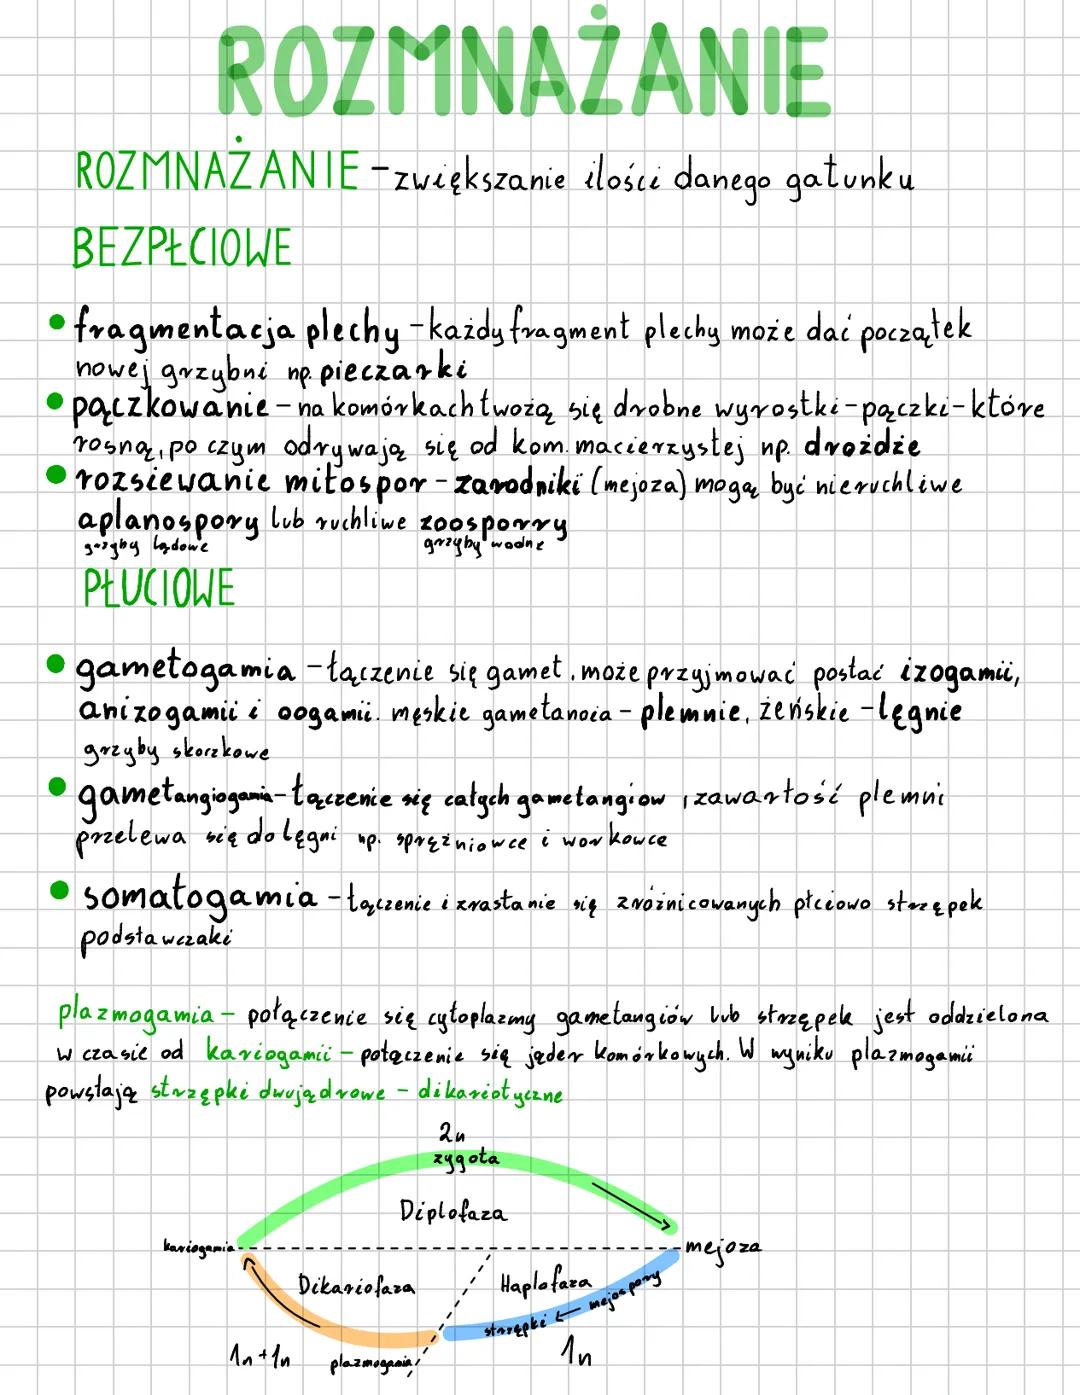 ROZMNAŻANIE
ROZMNAŻANIE - zwiększanie ilości danego gatunku
BEZPŁCIOWE
• fragmentacja plechy - każdy fragment plechy może dać początek
nowej grzybni np. pieczarki
• pączkowanie - na komórkach twożą się drobne wyrostki - pączki - które
rosną, po czym odrywają się od kom. macierzystej np. drożdże
• rozsiewanie mitospor - zarodniki (mejoza) mogą być nieruchliwe
aplanospory lub ruchliwe zoosporry
grzyby lądowe grzyby wodne
PŁUCIOWE
• gametogamia - łączenie się gamet, może przyjmować postać izogamii,
anizogamii i oogamii. męskie gametanoia - plemnie, żeńskie - lęgnie
grzyby skorzkowe
• gametangiogamia - łączenie się całych gametangiow, zawartość plemni
przelewa się do lęgni np. sprężniowce i workowce
• somatogamia - łączenie i zrastanie się zróżnicowanych płciowo strzępek
podstawczaki
plazmogamia - połączenie się cytoplazmy gametangiów lub strzępek jest oddzielona
w czasie od kariogamii - połączenie się jąder komórkowych. W wyniku plazmogamii
powstają strzępki dwujądrowe - dikariotyczne
2n
zygota
Diplofaza
kariogamia
mejoza
Dikariofaza
Haplofaza
mejospory
strzępki ←
1n+1n
plazmogamia
1n